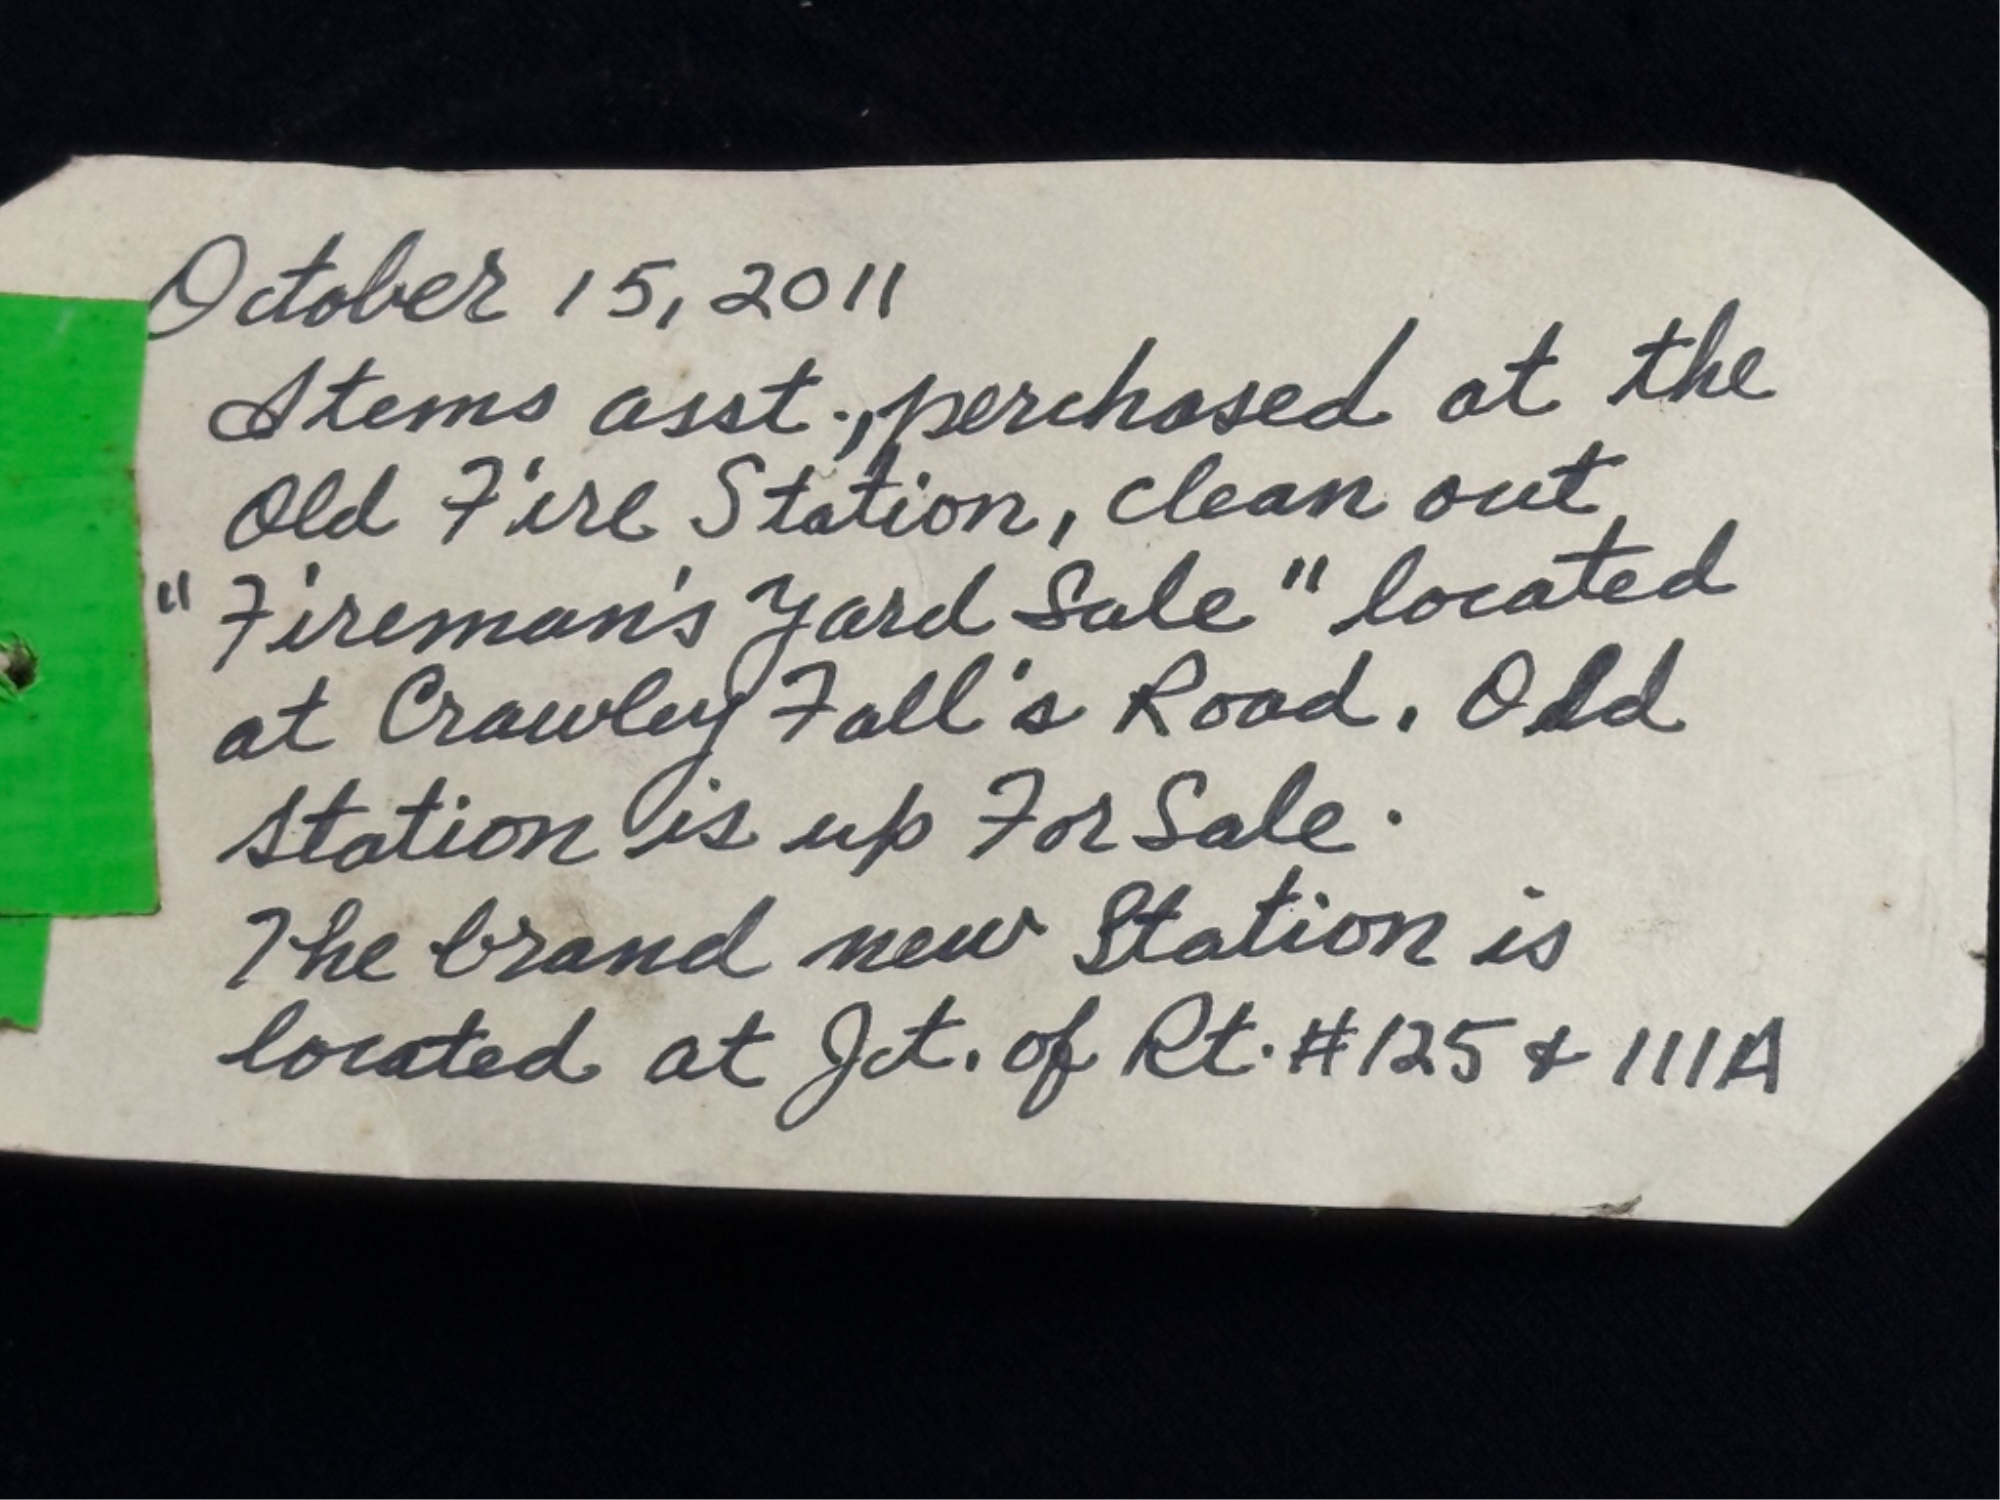 October 15, 2011
Items asst., perchased at the
Old Fire Station, clean out
"Fireman's Yard Sale" located
at Crawley Fall's Road. Old
Station is up For Sale.
The brand new Station is
located at Jct. of Rt. #125 & 111A